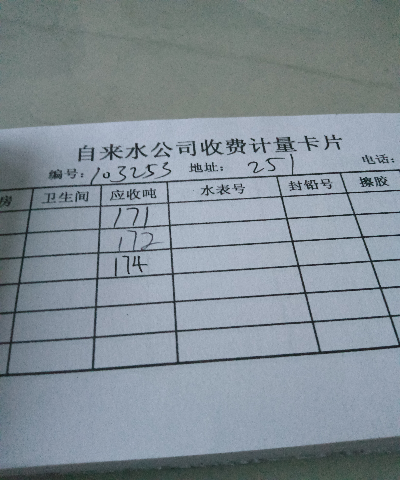 自来水公司收费计量卡片
编号: 103253 地址: 251 电话:
房 卫生间 应收吨 水表号 封铅号 擦胶
171
172
174